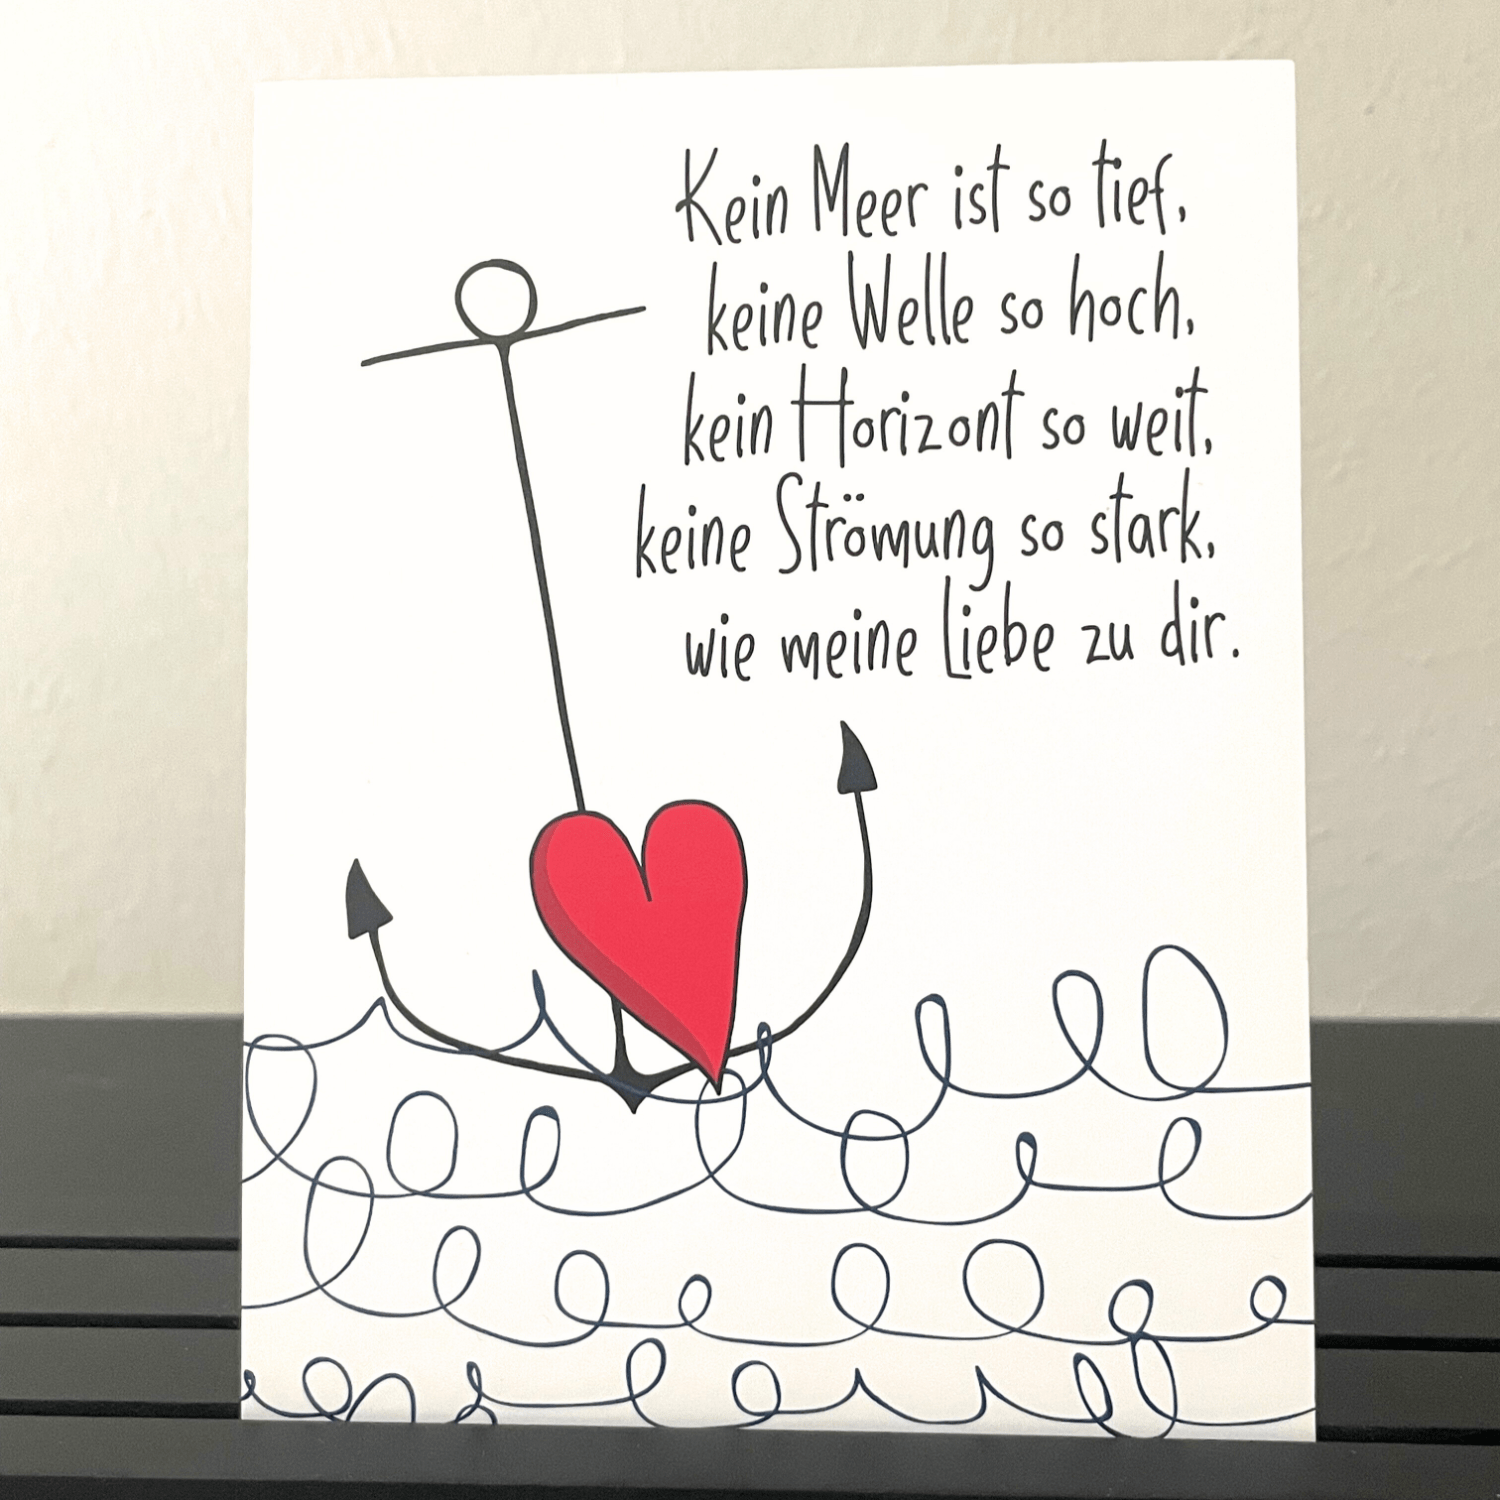 Kein Meer ist so tief,
keine Welle so hoch,
kein Horizont so weit,
keine Strömung so stark,
wie meine Liebe zu dir.